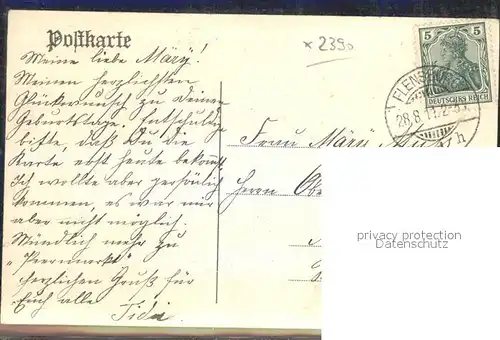 Postkarte
x 2390
5 5
DEUTSCHES REICH
FLENSBURG
28.8.11.2-3
Meine liebe Mary!
Meinen herzlichsten
Glückwunsch zu deinem
Geburtstage. Entschuldige
bitte, daß Du die
Karte erst heute bekomst
Ich wollte aber persönlich
kommen, es war mir
aber nicht möglich.
Mündlich mehr zu
"Peermarkt"
herzlichen Gruß für
Euch alle
Frau Mary
Herrn
privacy protection
Datenschutz